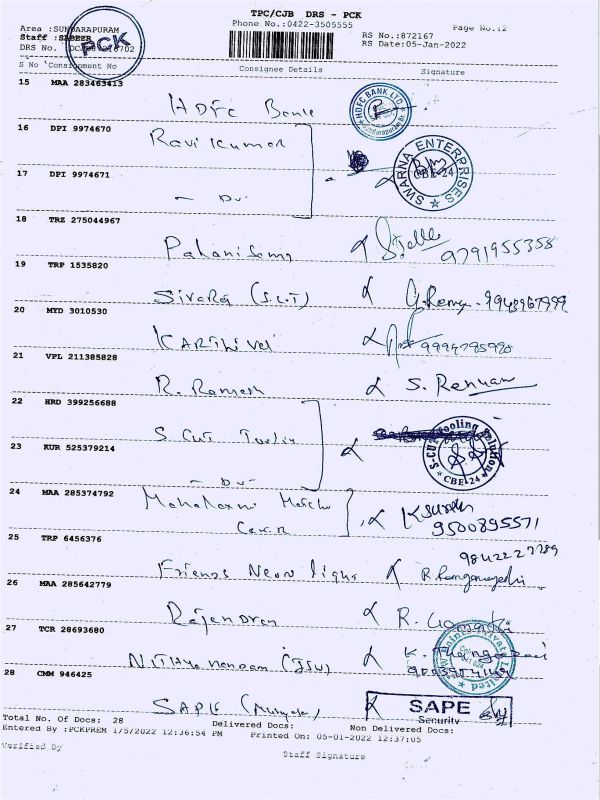 TPC/CJB DRS - PCK
Area :SUNDARAPURAM Phone No.:0422-3505555 Page No.:2
Staff :SABEER RS No.:872167
DRS No. RS Date:05-Jan-2022
PCK
S No Consignment No Consignee Details Signature
15 MAA 283463413
HDFC Bank HDFC BANK LTD
16 DPI 9974670
Ravi Kumar SWARNA ENTERPRISES CBE-24
17 DPI 9974671
- Do -
18 TRZ 275044967
Palanisamy 9791955358
19 TRP 1535820
Sivaraj (S.C.T)
20 MYD 3010530
Karthivel
21 VPL 211385828
R. Ramesh S.
22 HRD 399256688
S Cut S-CUT Tooling Solutions CBE-24
23 KUR 525379214
- Do -
24 MAA 285374792
Mahalaxmi
9500895571
25 TRP 6456376
Friends Neon light
26 MAA 285642779
Rajendran R.
27 TCR 28693680
Nithyanandam (JSW) K.
28 CMM 946425
SAPE SAPE
Security
Total No. Of Docs: 28 Delivered Docs: Non Delivered Docs:
Entered By :PCKPREM 1/5/2022 12:36:54 PM Printed On: 05-01-2022 12:37:05
Verified By Staff Signature